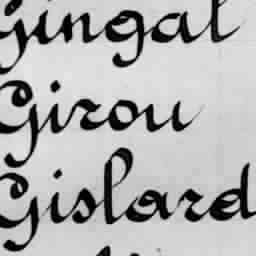 Gingal
Girou
Gislard